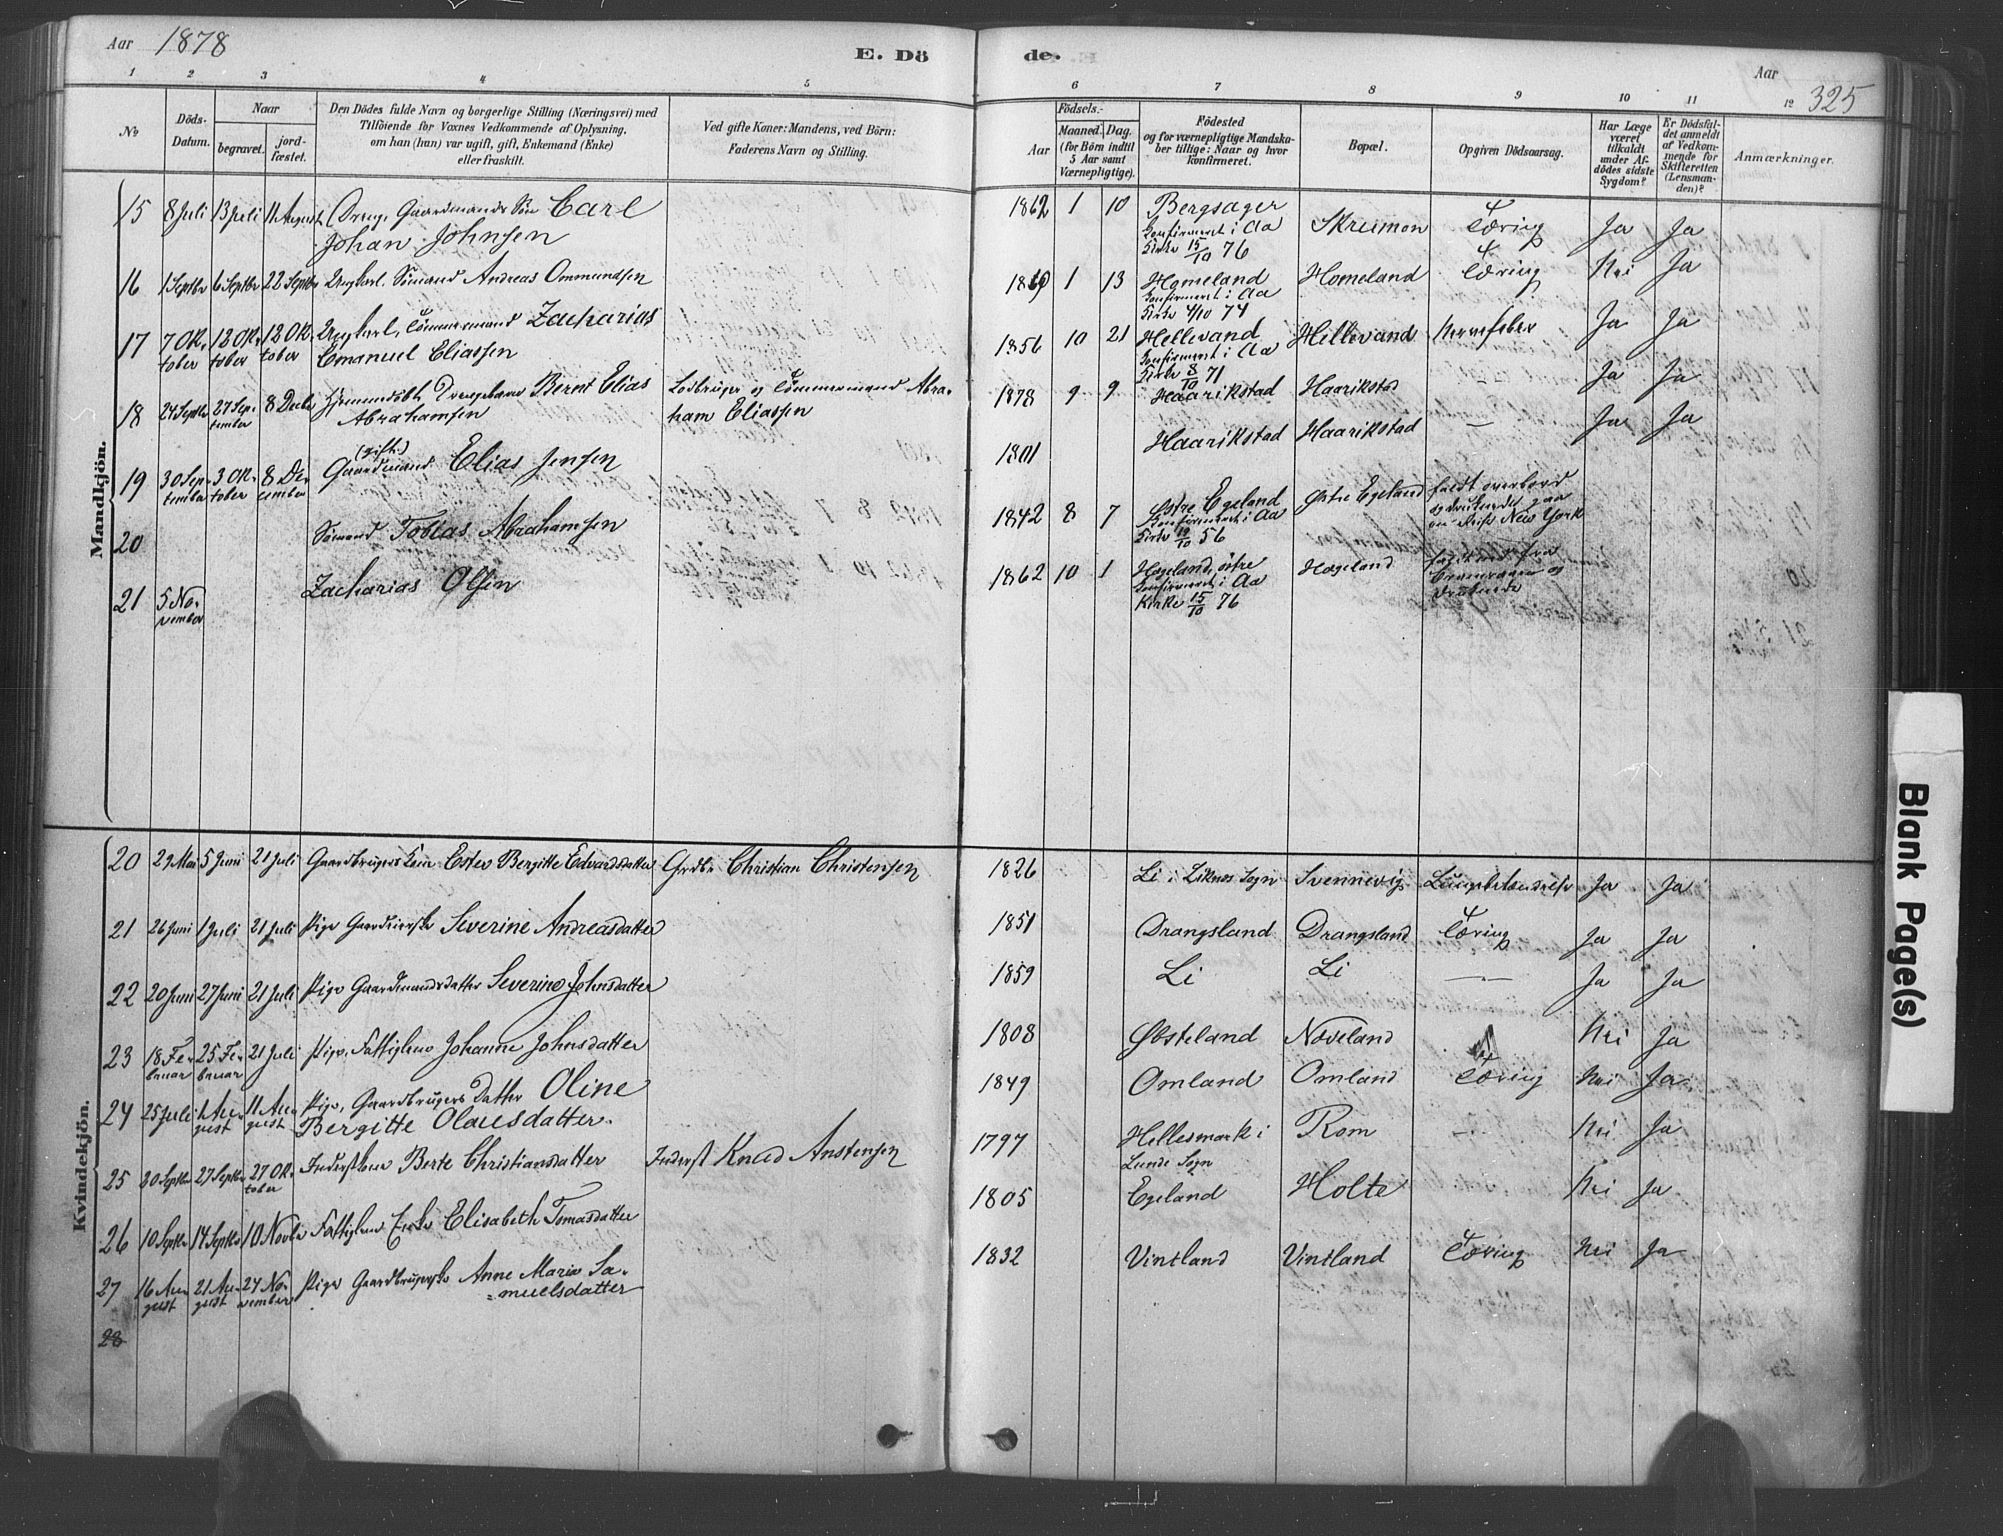 Aar 1878
E. Dö
de.
Aar
325
1 2 3 4 5 6 7 8 9 10 11 12
No
Döds-Datum.
Naar
begravet.
jord-fæstet.
Den Dödes fulde Navn og borgerlige Stilling (Næringsvei) med
Tilföiende for Voxnes Vedkommende af Oplysning,
om han (hun) var ugift, gift, Enkemand (Enke)
eller fraskilt.
Ved gifte Koner: Mandens, ved Börn:
Faderens Navn og Stilling.
Födsels.-
Aar
Maaned. Dag.
(for Börn indtil
5 Aar samt
Værnepligtige).
Födested
og for værnepligtige Mandska-
ber tillige: Naar og hvor
konfirmeret.
Bopæl.
Opgiven Dödsaarsag.
Har Læge
været
tilkaldt
under Af-
dödes sidste
Sygdom?
Er Dödsfal-
det anmeldt
af Vedkom-
mende for
Skifteretten
(Lensman-
den)?
Anmærkninger.
Mandkjön.
15 8 Juli 13 Juli 11 August Gaardmands Sön Carl
Johan Johnsen
1862 1 10 Bergsager
Konfirmeret i Aa
Kirke 15/10 76
Skreimon Tæring Ja Ja
16 1 Septbr 6 Septbr 22 Septbr Ungkarl. Sömand Andreas Ommundsen
1 13 Homeland
Konfirmeret i Aa
Kirke 4/10 74
Homeland Tæring Nei Ja
17 7 Ok-tober 12 Ok-tober 12 Ok-tober Ungkarl, Tömmermand Zacharias
Emanuel Eliassen
1856 10 21 Hellevand
Konfirmeret i Aa
Kirke 8/10 71
Hellevand Nervefeber Ja Ja
18 24 Septbr 27 Sep-tember 8 Decbr Hjemmedöbt Drengebarn Bernt Elias
Abrahamsen
Tömmermand Abra-
ham Eliassen
1878 9 9 Haarikstad Haarikstad Ja Ja
19 30 Sep-tember 3 Ok-tober 8 De-cember (gift)
Gaardmand Elias Jensen
1801 Haarikstad Haarikstad — Ja Ja
20 Sömand Tobias Abrahamsen
1842 8 7 Östre Egeland
Konfirmeret i Aa
Kirke 19/10 56
Östre Egeland faldt overbord
og druknede paa
en Reise New York
21 5 No-vember Zacharias Olsen
1862 10 1 Hægeland, östre
Konfirmeret i Aa
Kirke 15/10 76
Hægeland
og
druknede
Kvindekjön.
20 29 Mai 5 Juni 21 Juli Gaardbrugers Kone Ester Bergitte Edvardsdatter Grdbr Christian Christensen
1826 Li i Liknes Sogn Svennevig Lungebetændelse Ja Ja
21 26 Juni 1 Juli 21 Juli Pige Severine Andreasdatter
1851 Drangsland Drangsland Tæring Ja Ja
22 20 Juni 27 Juni 21 Juli Pige Gaardmandsdatter Severine Johnsdatter
1859 Li Li — Ja Ja
23 18 Fe-bruar 25 Fe-bruar 21 Juli Pige, Fattiglem Johanne Johnsdatter
1808 Øksteland Næveland Nei Ja
24 25 Juli 1 Au-gust 11 Au-gust Pige, Gaardbrugers Datter Oline
Bergitte Olausdatter.
1849 Omland Omland Tæring Nei Ja
25 20 Septbr 27 Septbr 27 Ok-tober Inderstkone Berte Christiansdatter Inderst Knud Anstensen
1797 Hellesmark i
Lunde Sogn
Rom — Nei Ja
26 10 Septbr 14 Septbr 10 Novbr Fattiglem Enke Elisabeth Tomasdatter
1805 Egeland Holte Nei Ja
27 16 Au-gust 21 Au-gust 24 No-vember Pige Anne Marie Sa-
muelsdatter
1832 Vintland Vintland Tæring Nei Ja
28
Blank Page(s)